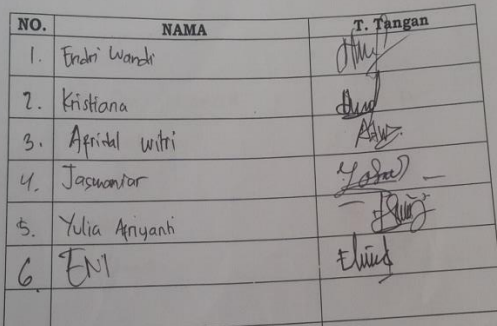 NO. NAMA T. Tangan
1. Endri Wandi
2. Kristiana
3. Afridal witri
4. Jaswaniar
5. Yulia Afriyanti
6. ENI